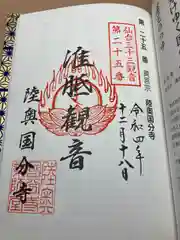 第二十五番 真言宗 陸奥国分寺
仙台三十三観音
第二十五番
令和四年
十二月十八日
准胝観音
陸奥国分寺